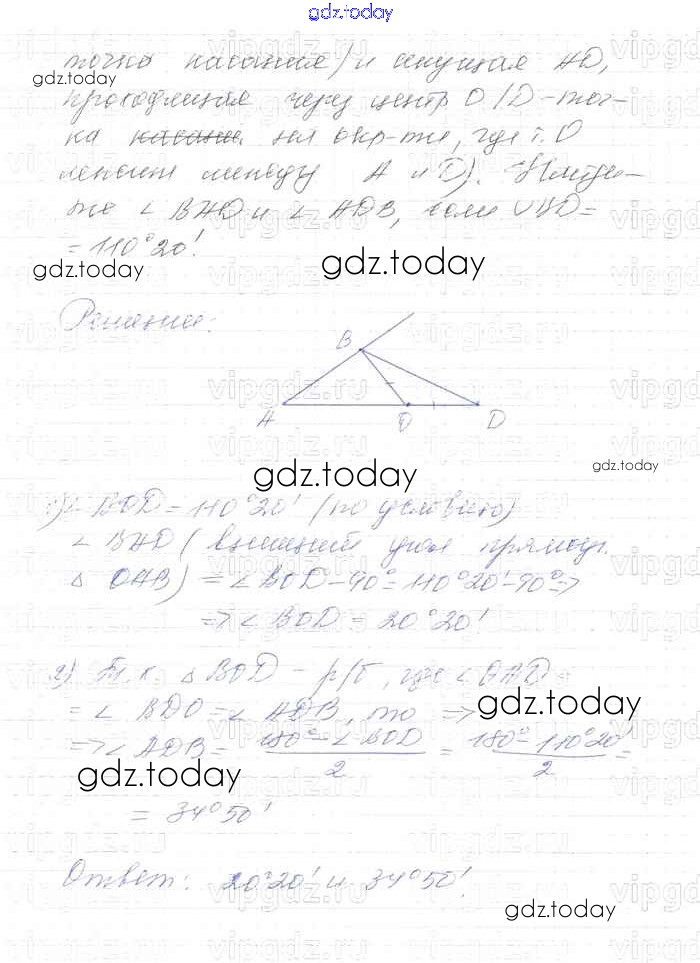 gdz.today
точка касания) и секущая AD,
gdz.today
проходящая через центр O (D-точ-
ка касания на окр-ти, где т. O
лежит между A и D). Найди-
те ∠ BAD и ∠ ADB, если ∪BD=
= 110°20'.
gdz.today gdz.today
Решение:
B
A O D
gdz.today gdz.today
1) ∠ BOD = 110°20' (по условию)
∠ BAD (внешний угол прямоуг.
△ OAB) = ∠ BOD - 90° = 110°20' - 90° =>
=> ∠ BOD = 20°20'
2) Т.к. △ BOD - р/б, где ∠ OAD
= ∠ BDO = ∠ ADB, то =>
gdz.today
=> ∠ ADB = 180° - ∠ BOD / 2 = 180° - 110°20' / 2 =
gdz.today
= 34°50'
Ответ: 20°20' и 34°50'.
gdz.today